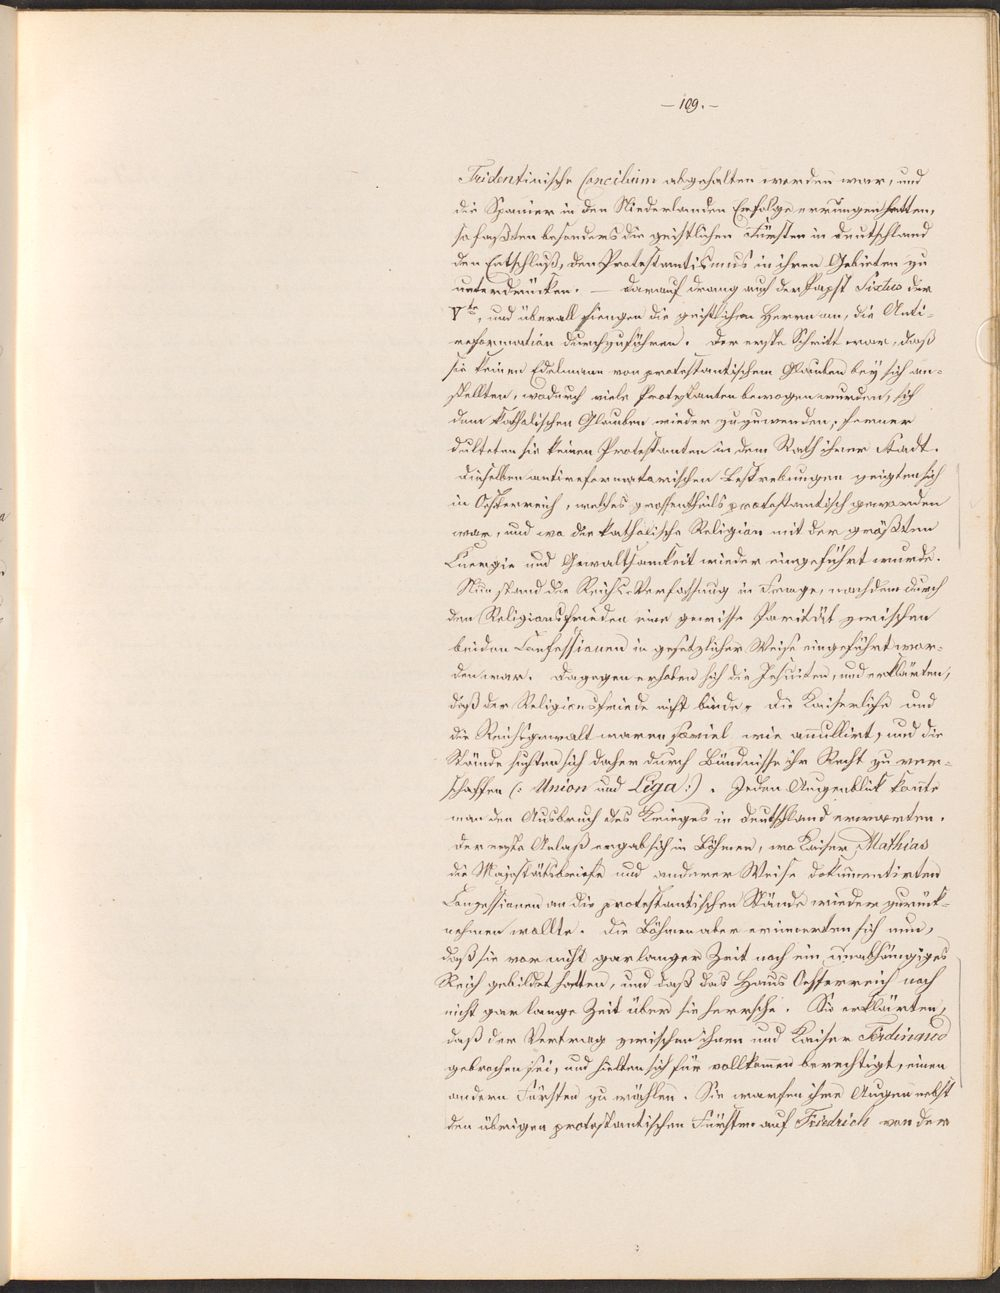 – 109. –
Tridentinische Concilium abgehalten worden war, und
die Spanier in den Niederlanden Erfolge errungen hatten,
so faßten besonders die geistlichen Fürsten in Deutschland
den Entschluß, den Protestantismus in ihren Gebieten zu
unterdrücken. — Darauf drang auch der Papst Sixtus der
Vte, und überall fiengen die geistlichen Herrn an, die Anti-
reformation durchzuführen. Der erste Schritt war, daß
sie keinen Edelmann von protestantischem Glauben bey sich an-
stellten, wodurch viele Protestanten bewogen wurden, sich
dem katholischen Glauben wieder zuzuwenden; ferner
dulteten sie keinen Protestanten in dem Rath ihrer Stadt.
Dieselben antireformatorischen Bestrebungen zeigten sich
in Oesterreich, welches grossentheils protestantisch geworden
war, und wo die katholische Religion mit der größten
Energie und Gewaltsamkeit wieder eingeführt wurde.
Nun stand die Reichs-Verfassung in Frage, nachdem durch
den Religionsfrieden eine gewisse Parität zwischen
beiden Confessionen in gesetzlicher Weise eingeführt wor-
den war. Dagegen erhoben sich die Jesuiten, und erklärten,
daß der Religionsfriede nicht binde. Die Kaiserliche und
die Reichsgewalt waren soviel wie annullirt, und die
Stände suchten sich daher durch Bündnisse ihr Recht zu ver-
schaffen (: Union und Liga :). Jeden Augenblick konte
man den Ausbruch des Krieges in Deutschland erwarten.
Der erste Anlaß ergab sich in Böhmen, wo Kaiser Mathias
die Majestätsbriefe und anderer Weise dokumentirten
Conzessionen an die protestantischen Stände wieder zurück-
nehmen wollte. Die Böhmen aber erinnerten sich nun,
daß sie vor nicht gar langer Zeit noch ein unabhängiges
Reich gebildet hatten, und daß das Haus Oesterreich noch
nicht gar lange Zeit über sie herrsche. Sie erklärten,
daß der Vertrag zwischen ihnen und Kaiser Ferdinand
gebrochen sei, und hielten sich für vollkomen berechtigt, einen
andern Fürsten zu wählen. Sie warfen ihre Augen nebst
den übrigen protestantischen Fürsten auf Friedrich von der